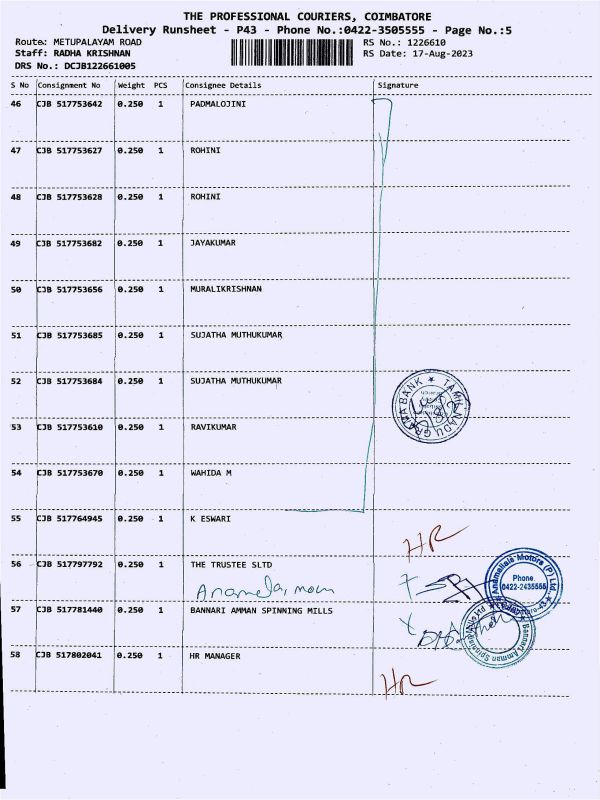 THE PROFESSIONAL COURIERS, COIMBATORE
Delivery Runsheet - P43 - Phone No.:0422-3505555 - Page No.:5
Route: METUPALAYAM ROAD RS No.: 1226610
Staff: RADHA KRISHNAN RS Date: 17-Aug-2023
DRS No.: DCJB122661005
S No Consignment No Weight PCS Consignee Details Signature
46 CJB 517753642 0.250 1 PADMALOJINI
47 CJB 517753627 0.250 1 ROHINI
48 CJB 517753628 0.250 1 ROHINI
49 CJB 517753682 0.250 1 JAYAKUMAR
50 CJB 517753656 0.250 1 MURALIKRISHNAN
51 CJB 517753685 0.250 1 SUJATHA MUTHUKUMAR
52 CJB 517753684 0.250 1 SUJATHA MUTHUKUMAR
TAMILNADU GRAMA BANK
53 CJB 517753610 0.250 1 RAVIKUMAR
54 CJB 517753670 0.250 1 WAHIDA M
55 CJB 517764945 0.250 1 K ESWARI
HR
56 CJB 517797792 0.250 1 THE TRUSTEE SLTD
Anamallais Motors (P) Ltd.
Phone
0422-2435555
57 CJB 517781440 0.250 1 BANNARI AMMAN SPINNING MILLS
Bannari Amman Spinning Mills Ltd
58 CJB 517802041 0.250 1 HR MANAGER
HR